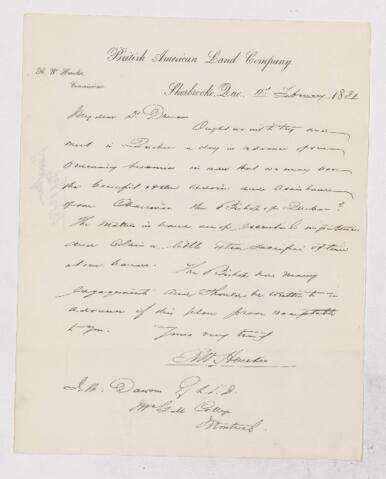 British American Land Company.
R. W. Heneker,
Commissioner.
Sherbrooke, Que. 11th February 1882
My dear Dr Dawson
Ought we not to try and
meet in Quebec a day in advance of our
business in order that we may have
the benefit of the advice and assistance
of our Chancellor the Bishop of Quebec?
The matter in hand is of essential importance
and claims a little extra sacrifice of time
at our hands. The Bishop has many
engagements and should be written to in
advance if this plan prove acceptable
to you. Yours very truly
R. W. Heneker
J. W. Dawson Esq L.L.D.
McGill College
Montreal.